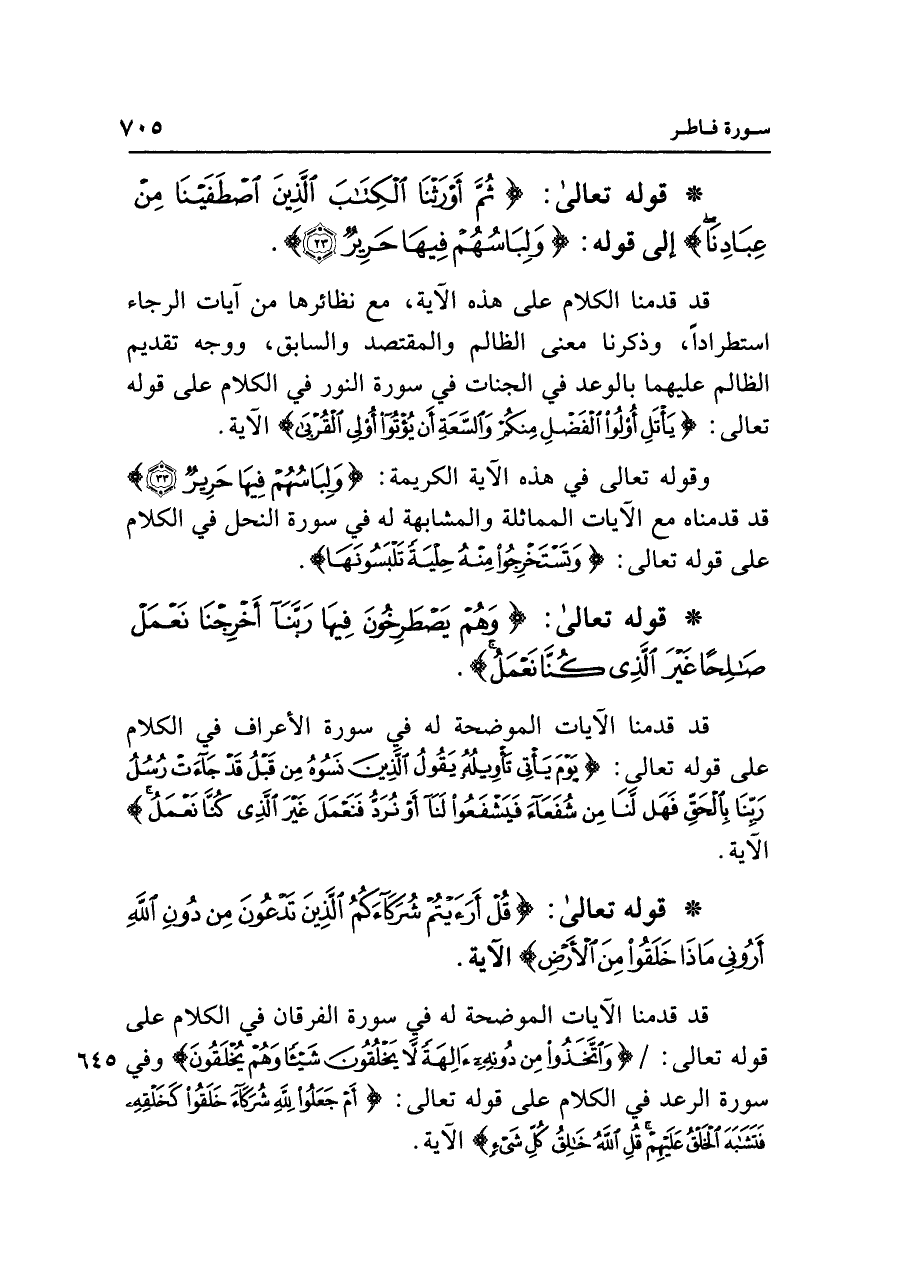 سورة فاطر ٧٠٥
* قوله تعالىٰ: ﴿ ثُمَّ أَوْرَثْنَا ٱلْكِتَٰبَ ٱلَّذِينَ ٱصْطَفَيْنَا مِنْ
عِبَادِنَاۖ﴾ إلى قوله: ﴿ وَلِبَاسُهُمْ فِيهَا حَرِيرٌ ٣٣﴾ .
قد قدمنا الكلام على هذه الآية، مع نظائرها من آيات الرجاء
استطراداً، وذكرنا معنى الظالم والمقتصد والسابق، ووجه تقديم
الظالم عليهما بالوعد في الجنات في سورة النور في الكلام على قوله
تعالى: ﴿ يَأْتَلِ أُوْلُوا۟ ٱلْفَضْلِ مِنكُمْ وَٱلسَّعَةِ أَن يُؤْتُوٓا۟ أُوْلِى ٱلْقُرْبَىٰ﴾ الآية.
وقوله تعالى في هذه الآية الكريمة: ﴿ وَلِبَاسُهُمْ فِيهَا حَرِيرٌ ٣٣﴾
قد قدمناه مع الآيات المماثلة والمشابهة له في سورة النحل في الكلام
على قوله تعالى: ﴿ وَتَسْتَخْرِجُوا۟ مِنْهُ حِلْيَةً تَلْبَسُونَهَا﴾ .
* قوله تعالىٰ: ﴿ وَهُمْ يَصْطَرِخُونَ فِيهَا رَبَّنَآ أَخْرِجْنَا نَعْمَلْ
صَٰلِحًا غَيْرَ ٱلَّذِى كُنَّا نَعْمَلُۚ﴾ .
قد قدمنا الآيات الموضحة له في سورة الأعراف في الكلام
على قوله تعالى: ﴿ يَوْمَ يَأْتِى تَأْوِيلُهُۥ يَقُولُ ٱلَّذِينَ نَسُوهُ مِن قَبْلُ قَدْ جَآءَتْ رُسُلُ
رَبِّنَا بِٱلْحَقِّ فَهَل لَّنَا مِن شُفَعَآءَ فَيَشْفَعُوا۟ لَنَآ أَوْ نُرَدُّ فَنَعْمَلَ غَيْرَ ٱلَّذِى كُنَّا نَعْمَلُۚ ﴾
الآية.
* قوله تعالىٰ: ﴿ قُلْ أَرَءَيْتُمْ شُرَكَآءَكُمُ ٱلَّذِينَ تَدْعُونَ مِن دُونِ ٱللَّهِ
أَرُونِى مَاذَا خَلَقُوا۟ مِنَ ٱلْأَرْضِ﴾ الآية .
قد قدمنا الآيات الموضحة له في سورة الفرقان في الكلام على
قوله تعالى: / ﴿ وَٱتَّخَذُوا۟ مِن دُونِهِۦٓ ءَالِهَةً لَّا يَخْلُقُونَ شَيْـًٔا وَهُمْ يُخْلَقُونَ﴾ وفي ٦٤٥
سورة الرعد في الكلام على قوله تعالى: ﴿ أَمْ جَعَلُوا۟ لِلَّهِ شُرَكَآءَ خَلَقُوا۟ كَخَلْقِهِۦ
فَتَشَٰبَهَ ٱلْخَلْقُ عَلَيْهِمْۚ قُلِ ٱللَّهُ خَٰلِقُ كُلِّ شَىْءٍ﴾ الآية.